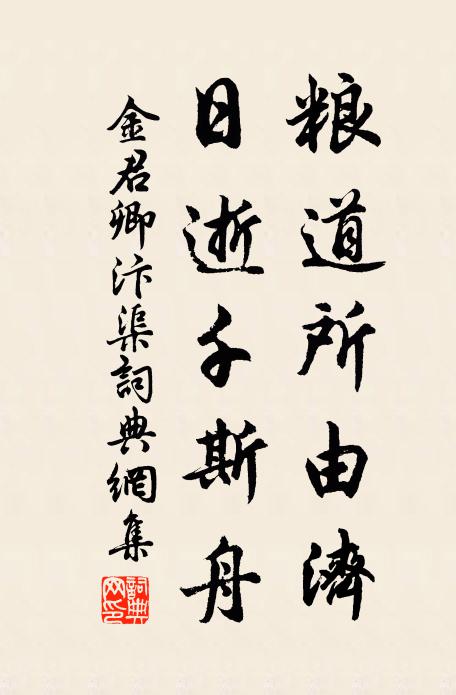 粮道所由濟
日逝千斯舟
金君卿汴渠詞典網集
詞典网印